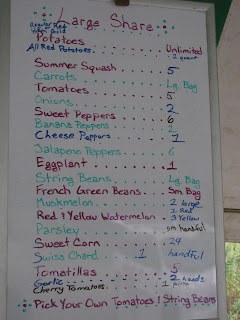 Large Share
Regular Red
Yukon Gold
Potatoes ........ Unlimited
All Red Potatoes ........ 2 quart
Summer Squash ..... 5
Carrots ........ Lg. Bag
Tomatoes ........ 5
Onions ........ 2
Sweet Peppers ..... 6
Banana Peppers ..... 2
Cheese Peppers ..... 1
Jalapeno Peppers ..... 6
Eggplant ........ 1
String Beans ..... Lg. Bag
French Green Beans .. Sm Bag
Muskmelon ..... 2 large
Red & Yellow Watermelon . 1 Red 3 Yellow
Parsley ........ sm handful
Sweet Corn ..... 24
Swiss Chard 1 handful
Tomatillas ..... 5
Garlic ........ 2 heads
Cherry Tomatoes ..... 1
Pick Your Own Tomatoes & String Beans